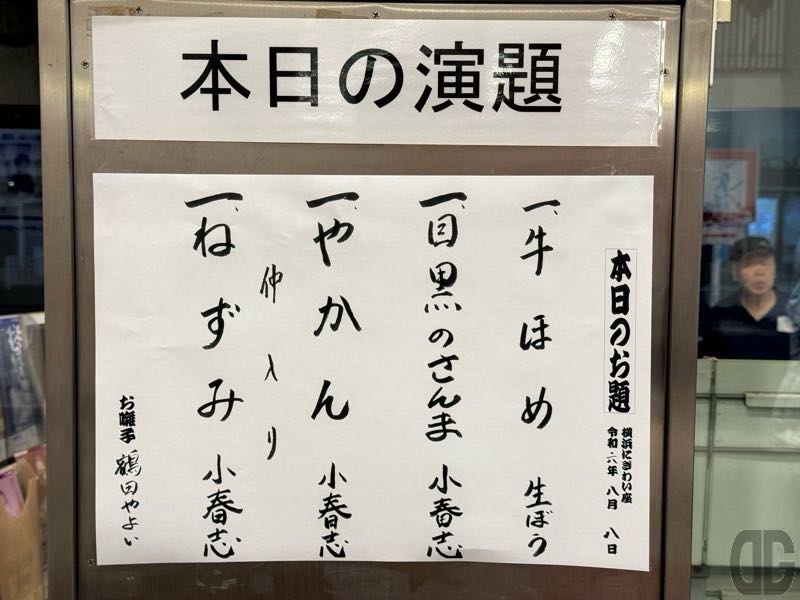 本日の演題
本日のお題
横浜にぎわい座
令和六年 八月 八日
一、牛ほめ 生ぼう
一、目黒のさんま 小春志
一、やかん 小春志
仲入り
一、ねずみ 小春志
お囃子 鶴田やよい
DG